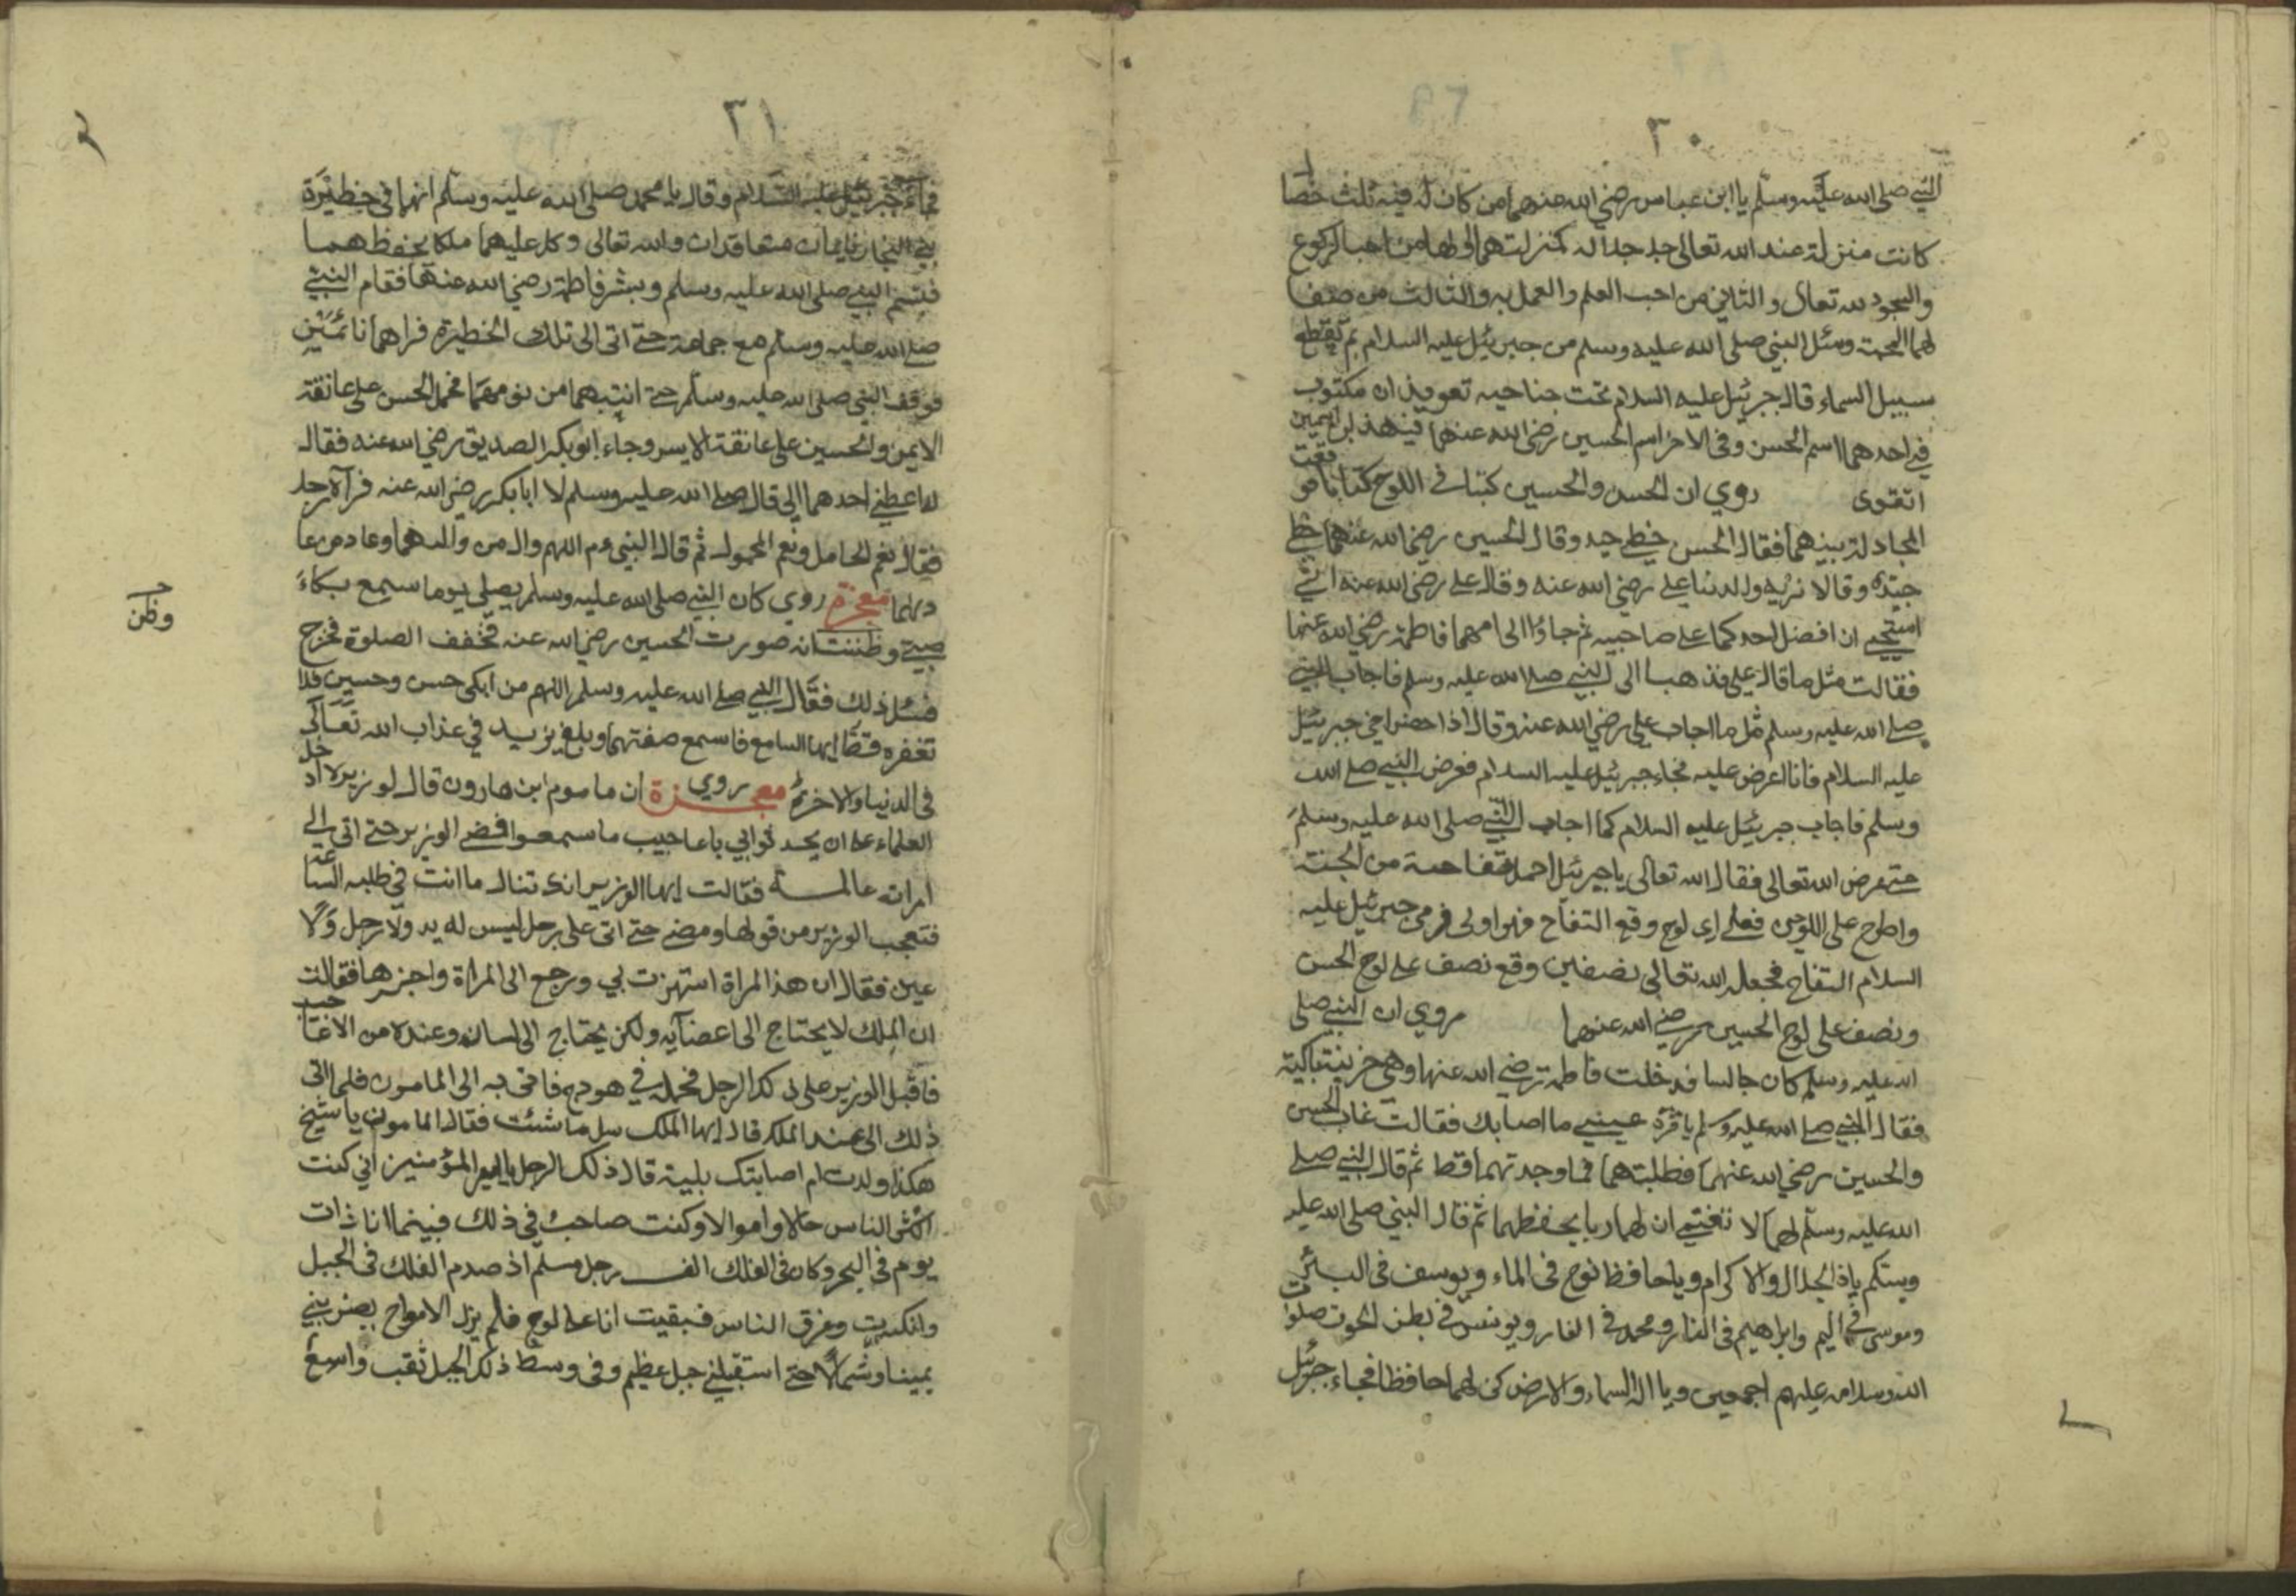 ٣٠
النبي صلى الله عليه وسلم يا ابن عباس رضي الله عنهما من كان له فيه ثلث خصا
كانت منزلة عند الله تعالى جل جلاله كمنزلتهما اولها من احب الركوع
والسجود لله تعالى والثاني من احب العلم والعمل به والثالث من صفا
لهما المحبة وسئل النبي صلى الله عليه وسلم من جبرئيل عليه السلام بم تقطع
سبيل السماء قال جبرئيل عليه السلام تحت جناحيه تعويذان مكتوب
في احدهما اسم الحسن وفي الاخر اسم الحسين رضي الله عنهما فبهذين الاسمين
اتقوى روي ان الحسن والحسين كتبا في اللوح كتابا فوقعت
المجادلة بينهما فقال الحسن خطي جيد وقال الحسين رضي الله عنهما خطي
جيد وقالا نريه والدنا علي رضي الله عنه وقال علي رضي الله عنه اني
استحيي ان افضل احدكما على صاحبيه ثم جاؤا الى امهما فاطمة رضي الله عنها
فقالت مثل ما قال علي فذهبا الى النبي صلى الله عليه وسلم فاجاب النبي
صلى الله عليه وسلم مثل ما اجاب علي رضي الله عنه وقال اذا حضر اخي جبرئيل
عليه السلام فانا اعرض عليه فجاء جبرئيل عليه السلام فعرض النبي صلى الله
وسلم فاجاب جبرئيل عليه السلام كما اجاب النبي صلى الله عليه وسلم
حتى عرض الله تعالى فقال الله تعالى يا جبرئيل احمل تفاحة من الجنة
واطرح على اللوحين فعلى اي لوح وقع التفاح فهو اولى فرمى جبرئيل عليه
السلام التفاح فجعل الله تعالى نصفين وقع نصف على لوح الحسن
ونصف على لوح الحسين رضي الله عنهما روي ان النبي صلى
الله عليه وسلم كان جالسا فدخلت فاطمة رضي الله عنها وهي حزينة باكية
فقال النبي صلى الله عليه وسلم يا قرة عيني ما اصابك فقالت غاب الحسن
والحسين رضي الله عنهما فطلبتهما فما وجدتهما قط ثم قال النبي صلى
الله عليه وسلم لهما لا تغتمي ان لهما ربا يحفظهما ثم قال النبي صلى الله عليه
وسلم يا ذا الجلال والاكرام ويا حافظ نوح في الماء ويوسف في البئر
وموسى في اليم وابراهيم في النار ومحمد في الغار ويونس في بطن الحوت صلوات
الله وسلامه عليهم اجمعين ويا اله السماء والارض كن لهما حافظا فجاء جبرئيل
٣١
فجاء جبرئيل عليه السلام وقال يا محمد صلى الله عليه وسلم انهما في حظيرة
بني النجار نايمان متعاقدان والله تعالى وكل عليهما ملكا يحفظهما
فتبسم النبي صلى الله عليه وسلم وبشر فاطمة رضي الله عنها فقام النبي
صلى الله عليه وسلم مع جماعة حتى اتى الى تلك الحظيرة فراهما نائمين
فوقف النبي صلى الله عليه وسلم حتى انتبهما من نومهما فحمل الحسن على عاتقة
الايمن والحسين على عاتقة الايسر وجاء ابو بكر الصديق رضي الله عنه فقال
له اعطني احدهما الي قال صلى الله عليه وسلم لا ابا بكر رضي الله عنه فرآه رجل
فقال نعم الحامل ونعم المحمول ثم قال النبي عم اللهم وال من والاهما وعاد من عا
داهما معجزة روي كان النبي صلى الله عليه وسلم يصلي يوما سمع بكاء
صبي وظننت انه صورت الحسين رضي الله عنه فخفف الصلوة فخرج
فسئل ذلك فقال النبي صلى الله عليه وسلم اللهم من ابكى حسن وحسين فلا
تغفره قط ايها السامع فاسمع صفتهما وبلغ يزيد في عذاب الله تعالى
في الدنيا والاخرة معجزة روي ان ماموم ابن هارون قال لوزير لا ادخل
العلماء على ان يجد ثوابي باعاجيب ما سمعوا فمضى الوزير حتى اتى الى
امراة عالمة فقالت ايها الوزير انك تنال ما انت في طلبه الساعة
فتعجب الوزير من قولها ومضى حتى اتى على رجل ليس له يد ولا رجل ولا
عين فقال ان هذا المراة استهزت بي ورجع الى المراة واخبرها فقالت
ان الملك لا يحتاج الى اعضآيه ولكن يحتاج الى لسانه وعنده من الاخبا
فاقبل الوزير على ذلك الرجل فحمله في هودج فاتى به الى المامون فلما اتى
ذلك الى عند الملك قال ايها الملك سل ما شئت فقال المامون يا شيخ
هكذا ولدت ام اصابتك بلية قال ذلك الرجل يا امير المؤمنين اني كنت
اكثر الناس حالا واموالا وكنت صاحب في ذلك فبينما انا ذات
يوم في البحر وكان في الفلك الف رجل مسلم اذ صدم الفلك في الجبل
وانكسرت وغرق الناس فبقيت انا على لوح فلم يزل الامواج يضربني
يمينا وشمالا حتى استقبلني جبل عظيم وفي وسط ذلك الجبل ثقب واسع
وظن